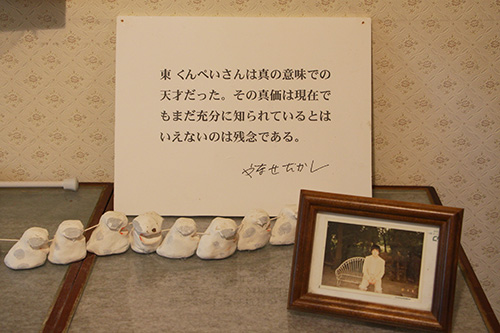 東 くんぺいさんは真の意味での
天才だった。その真価は現在で
もまだ充分に知られているとは
いえないのは残念である。
やなせたかし